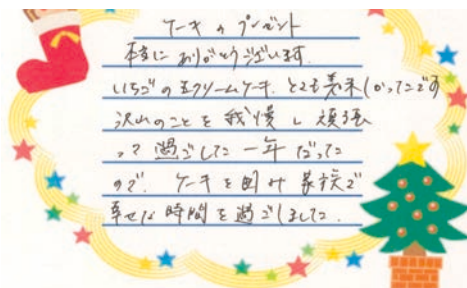 ケーキのプレゼント
本当にありがとうございます。
いちごの生クリームケーキ、とても美味しかったです
沢山のことを我慢し頑張
って過ごした一年だった
ので、ケーキを囲み家族で
幸せな時間を過ごしました。